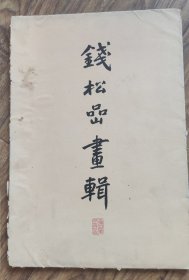 錢松嵒畫輯